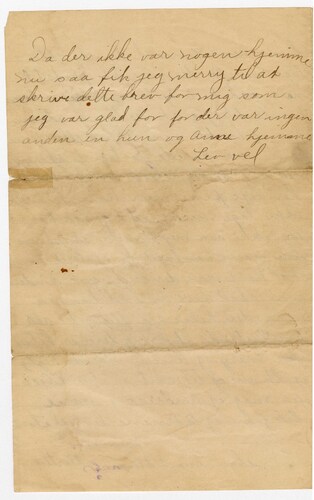 Da der ikke var nogen hjemme
nu saa fik jeg merry til at
skrive dette brev for mig som
jeg var glad for for der var ingen
anden en hun og hjemme
Lev vel